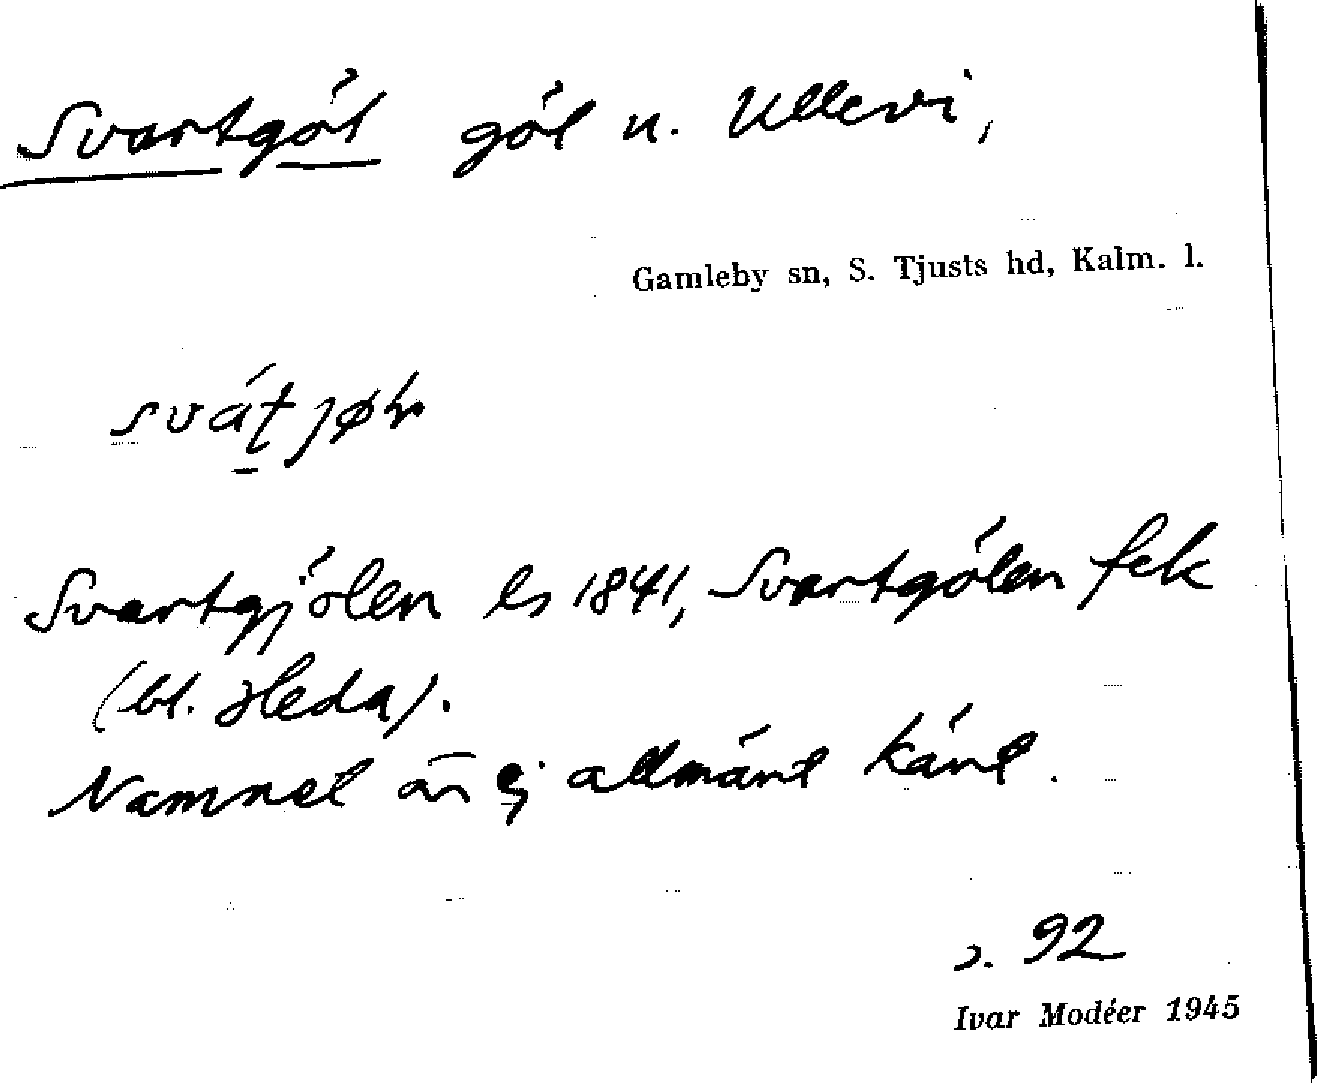 Svartgöl göl u. Ullevi,
Gamleby sn, S. Tjusts hd, Kalm. l.
Svartgjölen ls 1841, Svartgölen fek
(bl. Heda).
Namnet är ej allmänt känt.
s. 92
Ivar Modéer 1945